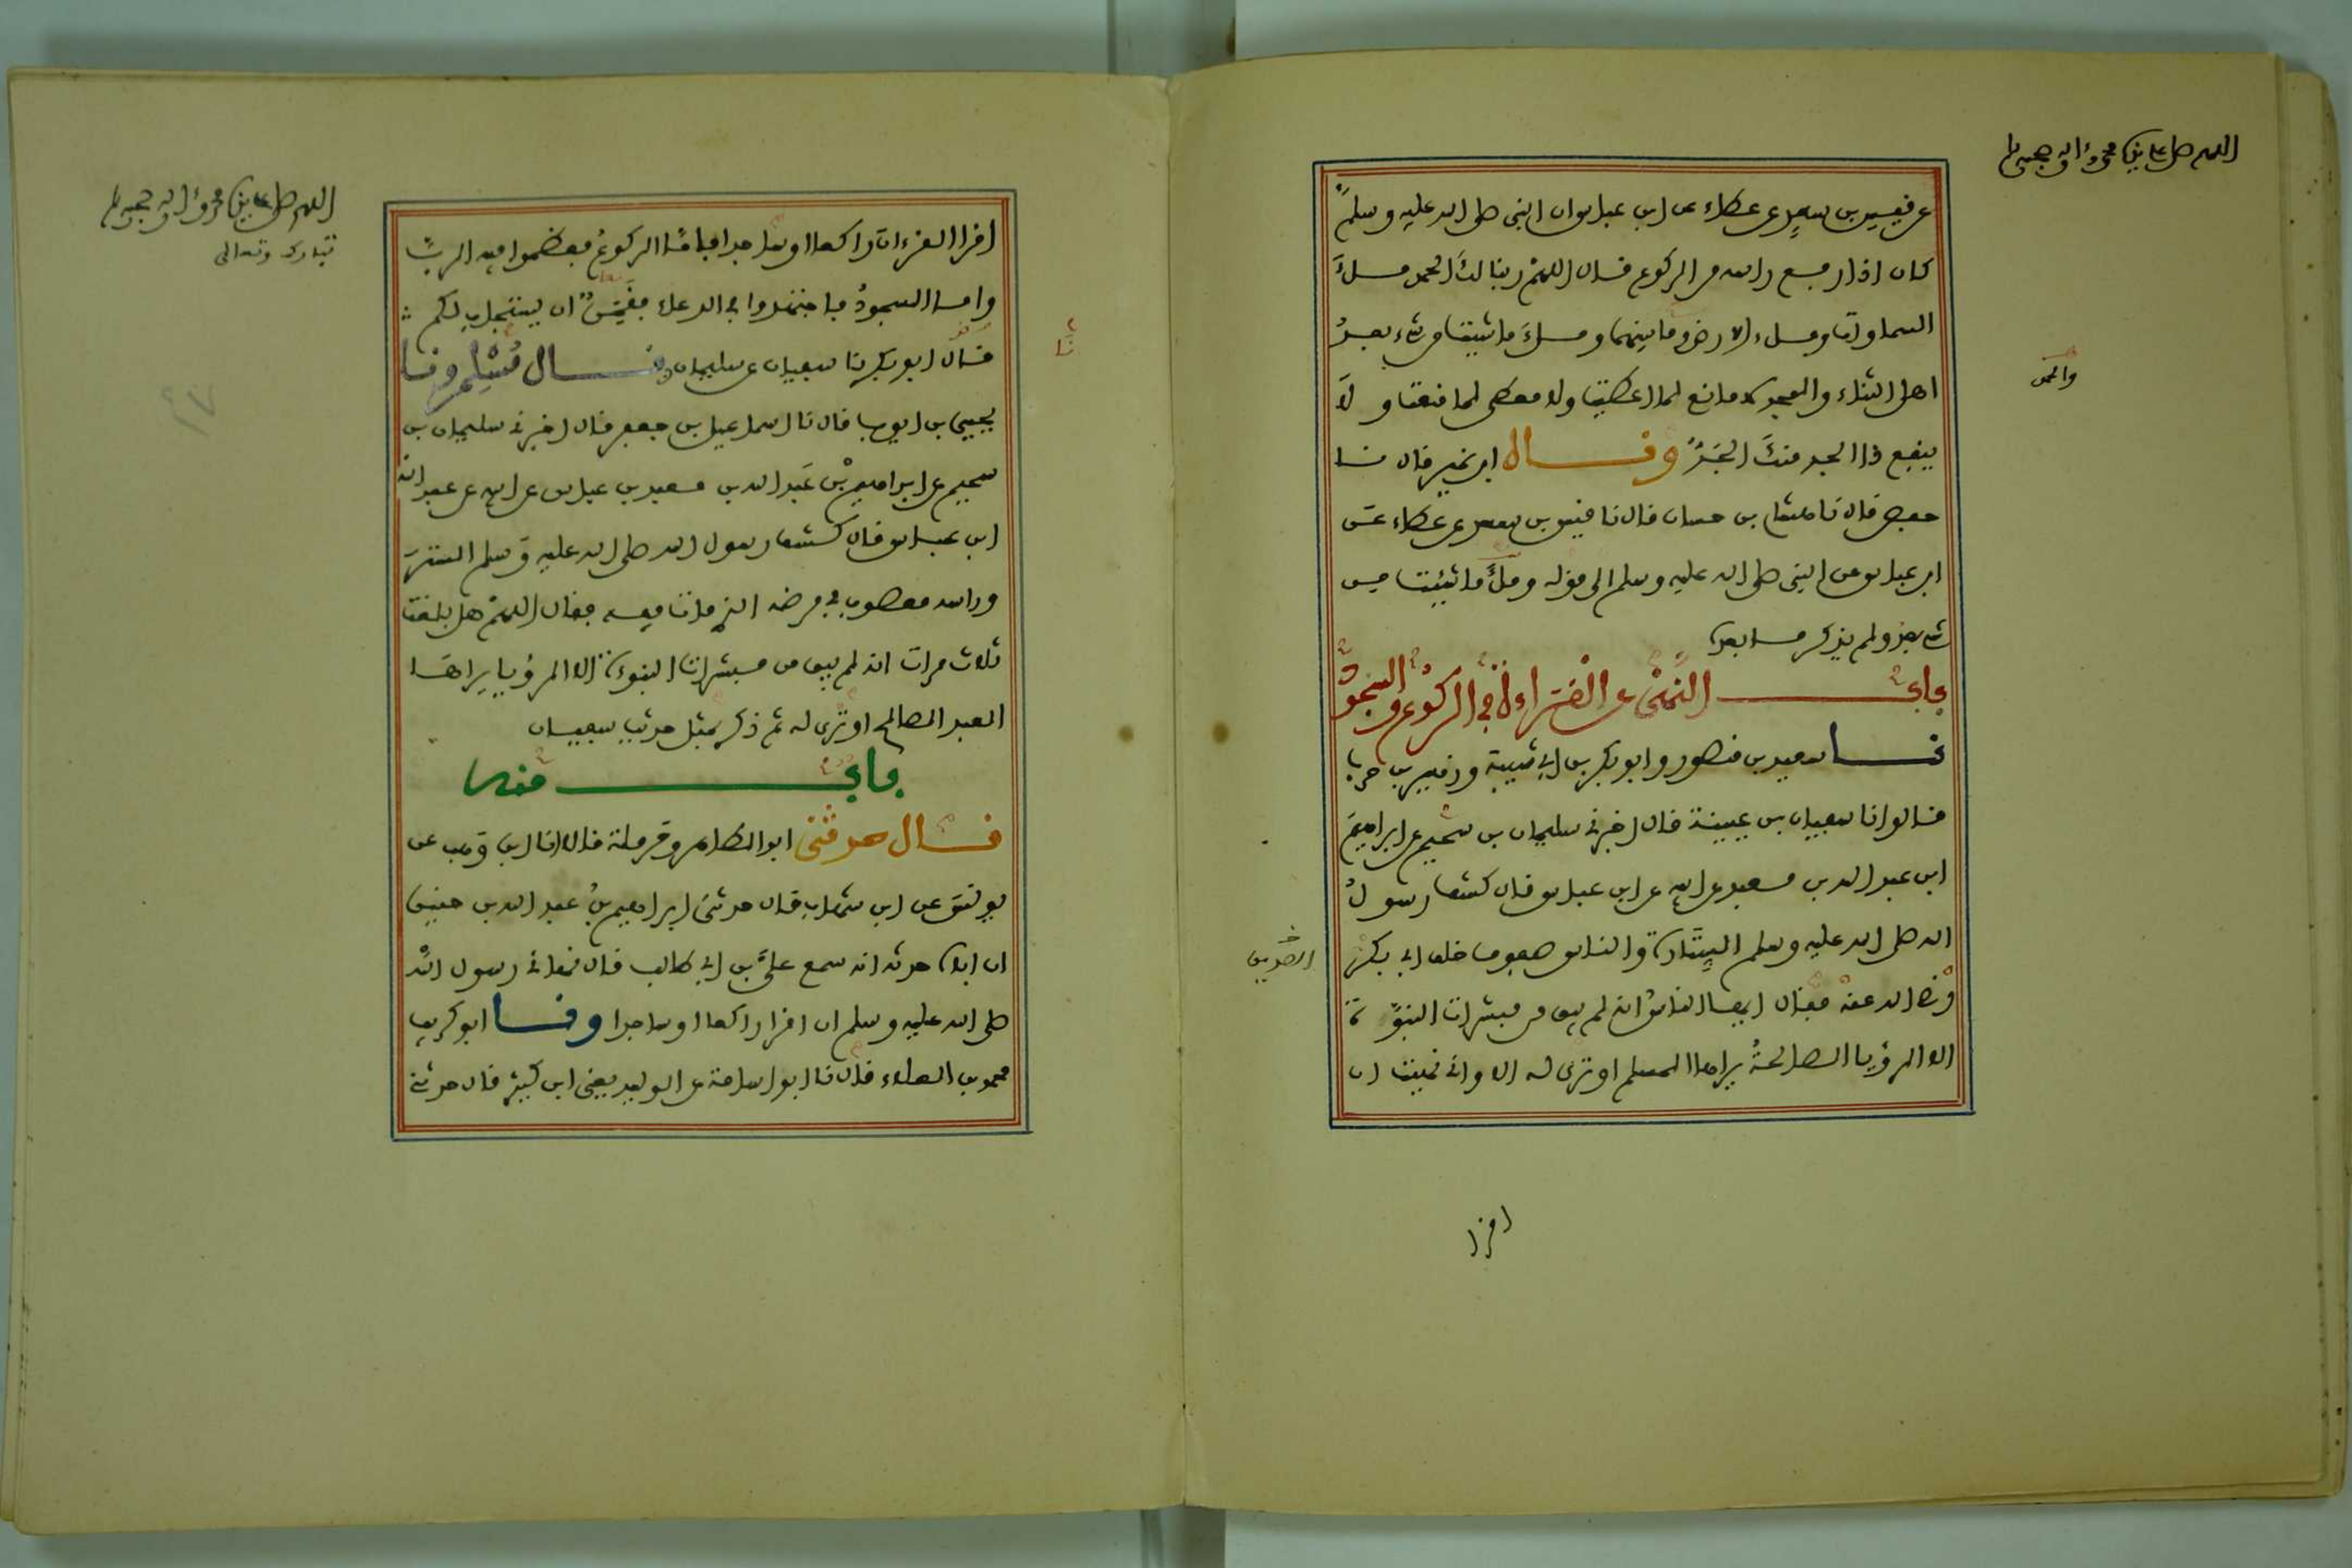 اللهم صل على سيدنا محمد وءاله وصحبه وسلم
عن قيس بن سعد عن عطاء عن ابن عباس ان النبي صلى الله عليه وسلم
كان اذا رفع راسه من الركوع قال اللهم ربنا لك الحمد ملء
السماوات وملء الارض وما بينهما وملء ما شيت من شيء بعد
اهل الثناء والمجد لا مانع لما اعطيت ولا معطي لما منعت ولا
ينفع ذا الجد منك الجد وقال ابن نمير قال نا
حفص قال نا هشام بن حسان قال نا قيس بن سعد عن عطاء عن
ابن عباس عن النبي صلى الله عليه وسلم الى قوله وملء ما شئت من
شيء بعد ولم يذكر ما بعده
باب النهي عن القراءة في الركوع والسجود
نا سعيد بن منصور وابو بكر بن ابي شيبة وزهير بن حرب
قالوا نا سفيان بن عيينة قال اخبرني سليمان بن سحيم عن ابراهيم
ابن عبد الله بن معبد عن ابيه عن ابن عباس قال كشف رسول
الله صلى الله عليه وسلم الستارة والناس صفوف خلف ابي بكر
رضي الله عنه فقال ايها الناس انه لم يبق من مبشرات النبوة
الا الرؤيا الصالحة يراها المسلم او ترى له الا واني نهيت ان
اقرا
اللهم صل على سيدنا محمد وءاله وصحبه وسلم
تبارك وتعالى
اقرا القرءان راكعا او ساجدا فاما الركوع فعظموا فيه الرب
واما السجود فاجتهدوا في الدعاء فقمن ان يستجاب لكم
قال ابو بكر نا سفيان عن سليمان قال مسلم ونا
يحيى بن ايوب قال نا اسماعيل بن جعفر قال اخبرني سليمان بن
سحيم عن ابراهيم بن عبد الله بن معبد بن عباس عن ابيه عن عبد الله
ابن عباس قال كشف رسول الله صلى الله عليه وسلم الستر
وراسه معصوب في مرضه الذي مات فيه فقال اللهم هل بلغت
ثلاث مرات انه لم يبق من مبشرات النبوءة الا الرؤيا يراها
العبد الصالح او ترى له ثم ذكر بمثل حديث سفيان
باب منه
قال حدثني ابو الطاهر وحرملة قالا نا ابن وهب عن
يونس عن ابن شهاب قال حدثني ابراهيم بن عبد الله بن حنين
ان اباه حدثه انه سمع علي بن ابي طالب قال نهاني رسول الله
صلى الله عليه وسلم ان اقرا راكعا او ساجدا ونا ابو كريب
محمد بن العلاء قال نا ابو اسامة عن الوليد يعني ابن كثير قال حدثني